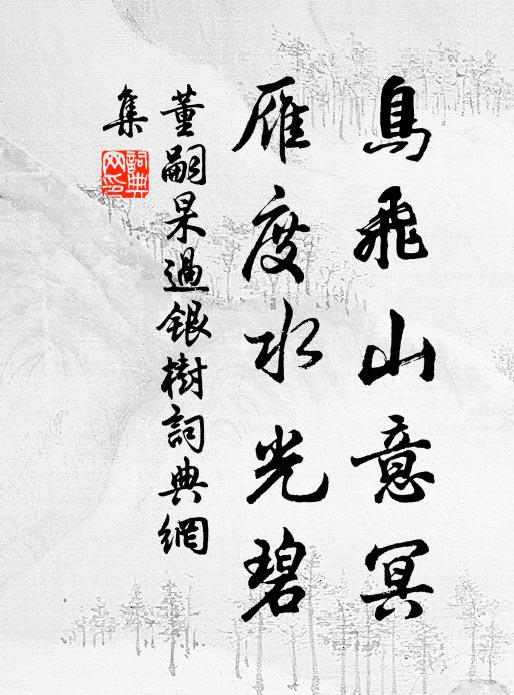 鳥飛山意冥
雁度水光碧
董嗣杲過銀樹詞典網
集
詞典
網印